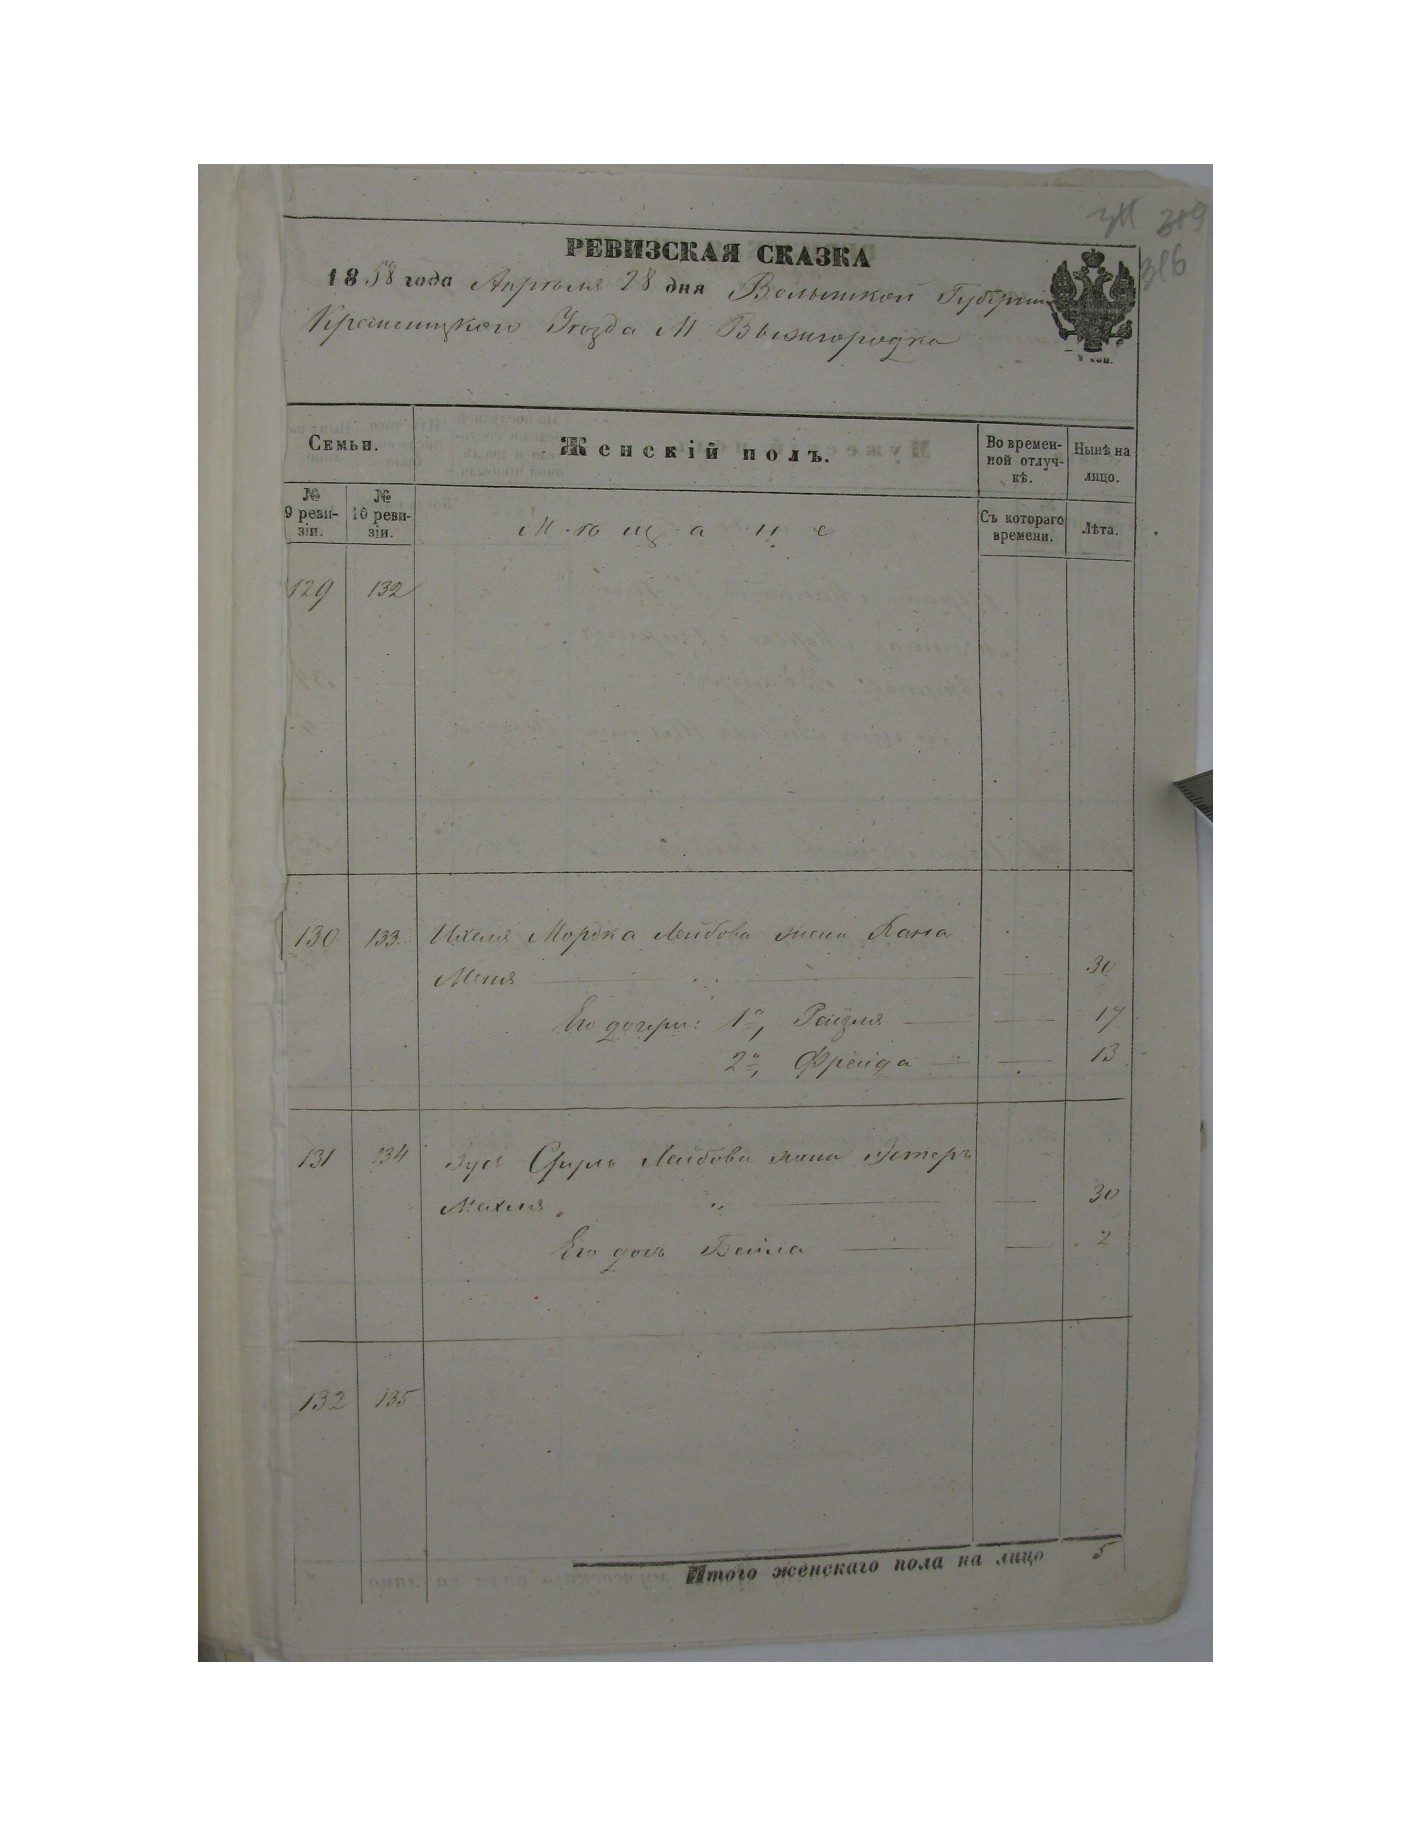 319
316
РЕВИЗСКАЯ СКАЗКА
1858 года Апреля 28 дня Волынской Губернии
Кременецкого Уѣзда М Вышгородка
коп.
Семьи.
Женскій полъ.
Во времен-
ной отлуч-
кѣ.
Нынѣ на
лицо.
№
9 реви-
зіи.
№
10 реви-
зіи.
Съ котораго
времени.
Лѣта.
М ѣ щ а н е
129 132
130 133 Ихеля Мордка Лейбова жена Хана
Меня 30
Его дочери: 1я, Рейзля 17
2я, Фрейда 13
131 134 Зуся Сруль Лейбова жена Эстеръ
Махля 30
Его дочь Бейла 2
132 135
Итого женскаго пола на лицо 5